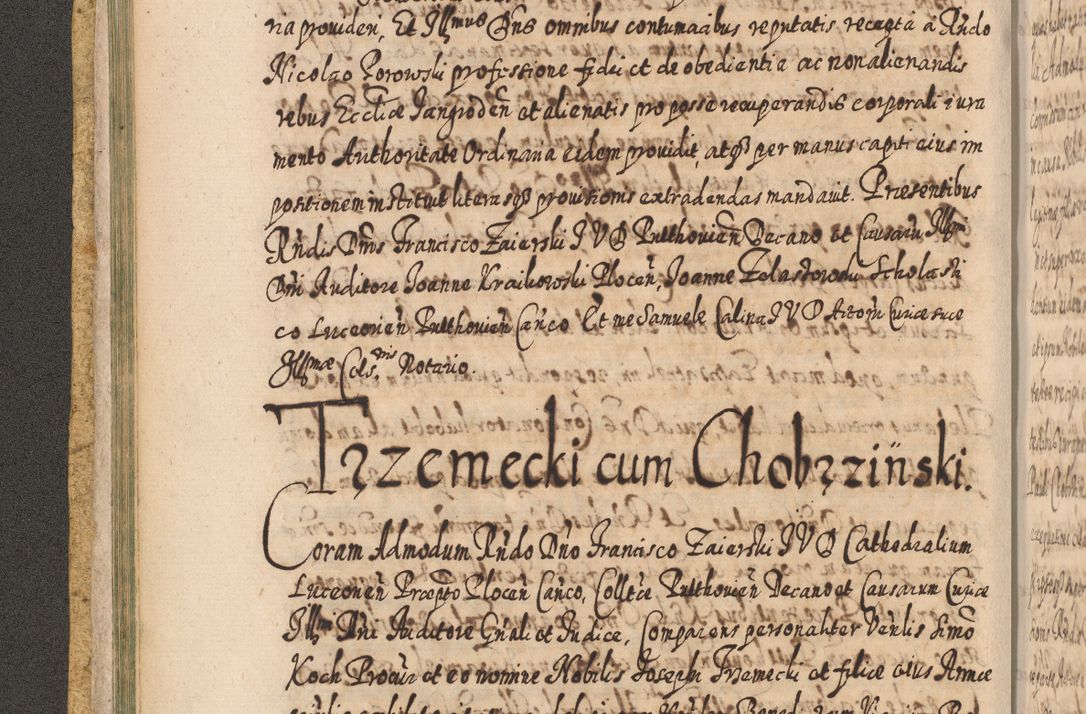 na providen, Et Illmus Dns omnibus contumacibus reputatis recepta a Rndo
Nicolao Porowski professione fidei et de obedientia ac non alienandis
rebus Eccliae Jangroden et alienatis pro posse recuperandis corporali iura
mento Authoritate Ordinaria eidem providit, atq3 per manus capiti eius im
positionem instituit literasq3 provisionis extradendas mandavit. Praesentibus
Rndis Dnis Francisco Zaierski J V D Pulthovien Decano et Causaru Illmi
Dni Auditore Joanne Kraikowski Plocen, Joanne Zelastowski Scholasti
co Luceorien Pulthovien Canco Et me Samuele Calina J V D Actorn Curiae suae
Illmae Cels.nis Notario.
Trzemecki cum Chobrziński.
Coram Admodum Rndo Dno Francisco Zaierski J V D Cathedralium
Luceorien Praepto Plocen Canco, Colltae Pulthovien Decano et Causarum Curiae
Illmi Dni Auditore Gnali et Judice, Comparens personaliter Venlis Simo
Koch Procur et eo nomine Nobilis Joseph Trzemecki et filiae eius Annae